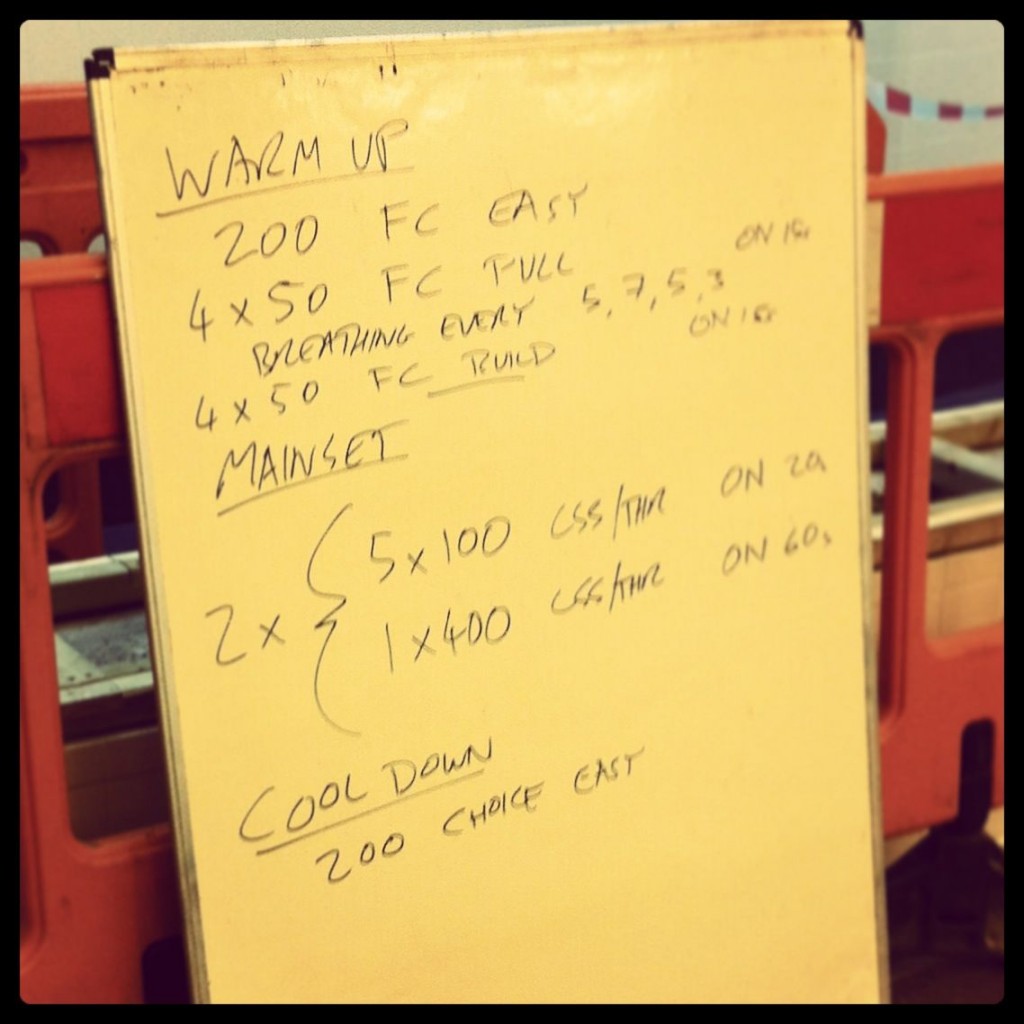 WARM UP
200 FC EASY
4 x 50 FC PULL ON 15s
BREATHING EVERY 5, 7, 5, 3
4 x 50 FC BUILD ON 15s
MAINSET
2 x { 5 x 100 CSS/THR ON 20s
1 x 400 CSS/THR ON 60s
COOL DOWN
200 CHOICE EASY